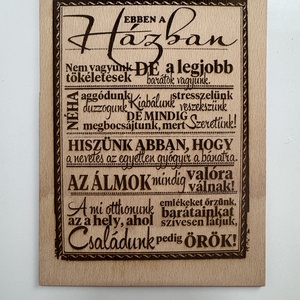 EBBEN A
Házban
Nem vagyunk tökéletesek DE a legjobb barátok vagyunk.
NÉHA aggódunk duzzogunk Kiabálunk stresszelünk veszekszünk
DE MINDIG
megbocsájtunk, mert Szeretünk!
HISZÜNK ABBAN, HOGY
a nevetés az egyetlen gyógyír a bánatra.
AZ ÁLMOK mindig valóra válnak!
A mi otthonunk az a hely, ahol emlékeket őrzünk, barátainkat szívesen látjuk,
Családunk pedig ÖRÖK!